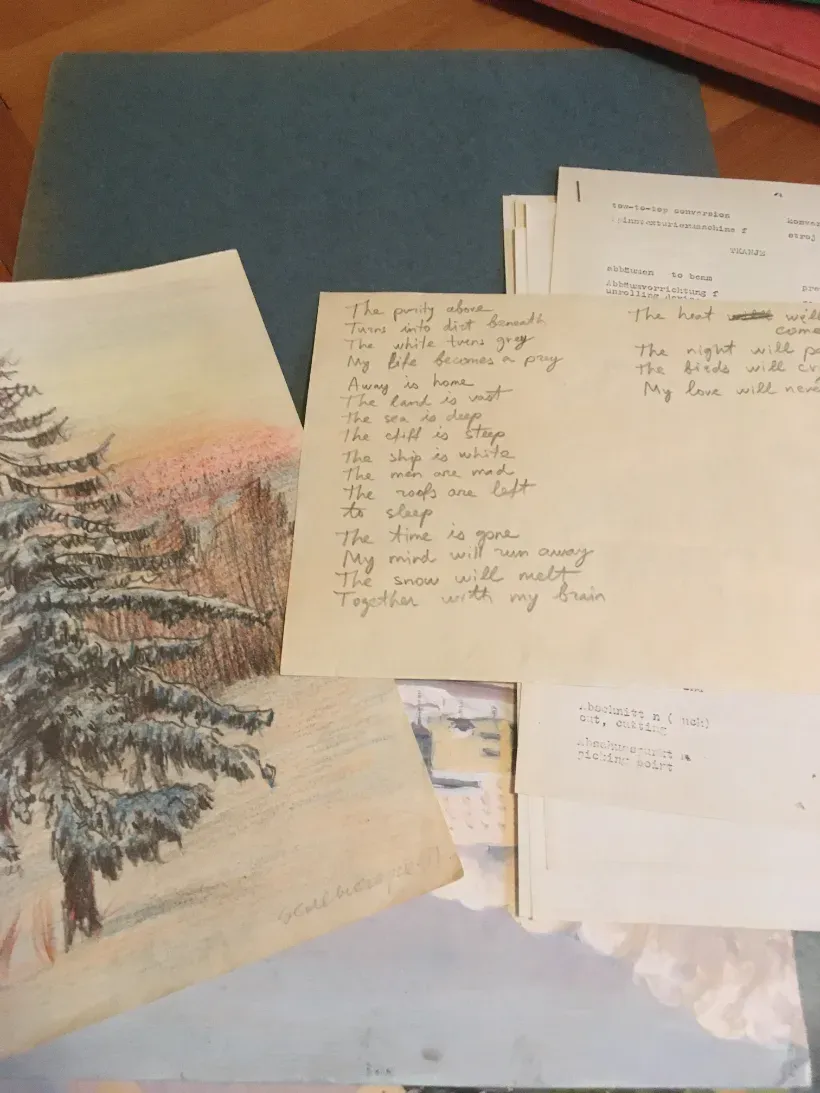 tow-to-top conversion
f
TKANJE
abbäumen to beam
Abbäumvorrichtung f
unrolling
The purity above
Turns into dirt beneath
The white turns grey
My life becomes a pray
Away is home
The land is vast
The sea is deep
The cliff is steep
The ship is white
The men are mad
The roofs are left
to sleep
The time is gone
My mind will run away
The snow will melt
Together with my brain
The heat will
come
The night will
The birds will
My love will
Abschnitt n (
cut, cutting
picking point